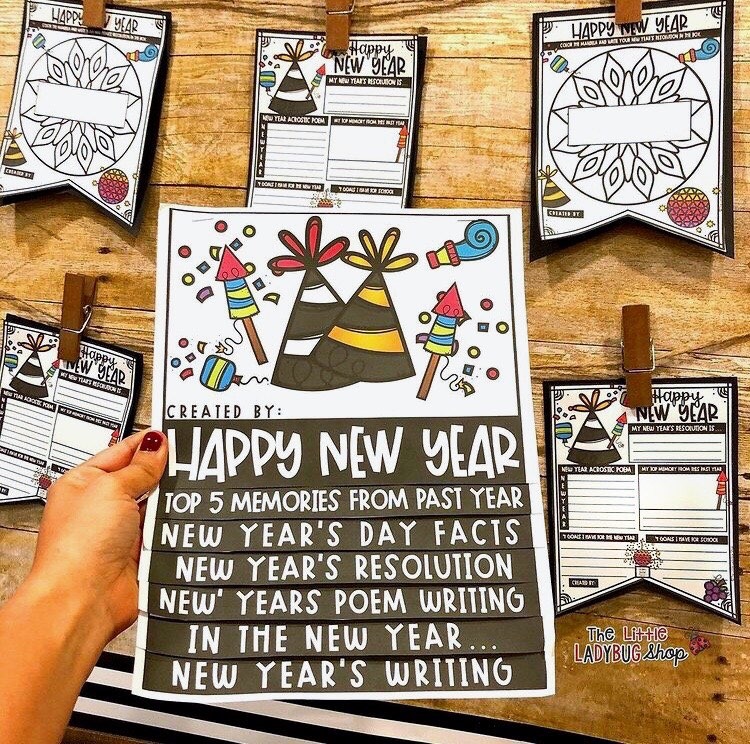 HAPPY NEW YEAR
COLOR THE MANDALA AND WRITE YOUR NEW YEAR'S RESOLUTION IN THE BOX.
CREATED BY:
Happy
NEW YEAR
MY NEW YEAR'S RESOLUTION IS...
NEW YEAR ACROSTIC POEM
MY TOP MEMORY FROM THIS PAST YEAR
N
E
W
Y
E
A
R
4 GOALS I HAVE FOR THE NEW YEAR
4 GOALS I HAVE FOR SCHOOL
HAPPY NEW YEAR
COLOR THE MANDALA AND WRITE YOUR NEW YEAR'S RESOLUTION IN THE BOX.
CREATED BY:
CREATED BY:
HAPPY NEW YEAR
TOP 5 MEMORIES FROM PAST YEAR
NEW YEAR'S DAY FACTS
NEW YEAR'S RESOLUTION
NEW' YEARS POEM WRITING
IN THE NEW YEAR...
NEW YEAR'S WRITING
Happy
NEW YEAR
MY NEW YEAR'S RESOLUTION IS...
NEW YEAR ACROSTIC POEM
MY TOP MEMORY FROM THIS PAST YEAR
4 GOALS I HAVE FOR THE NEW YEAR
Happy
NEW YEAR
MY NEW YEAR'S RESOLUTION IS...
NEW YEAR ACROSTIC POEM
MY TOP MEMORY FROM THIS PAST YEAR
N
E
W
Y
E
A
R
4 GOALS I HAVE FOR THE NEW YEAR
4 GOALS I HAVE FOR SCHOOL
CREATED BY:
The Little
LADYBUG Shop